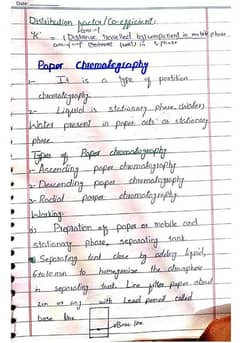 Date:
Distribution factor/Co-efficient:
"K" = (Distance travelled by component in mobile phase
in S.phase
Paper Chromatography
1- It is a type of partition
chromatography.
2- Liquid is stationary phase. (Water)
Water present in paper acts as stationary
phase.
Types of Paper chromatography
1- Ascending paper chromatography
2- Descending paper chromatography
3- Radial paper chromatography
Working:
of paper or mobile and
stationary phase, separating tank
Separating tank close by adding liquid,
to homogenize the atmosphere
in separating tank. Line filter paper about
2cm with Lead pencil called
base line
Base line